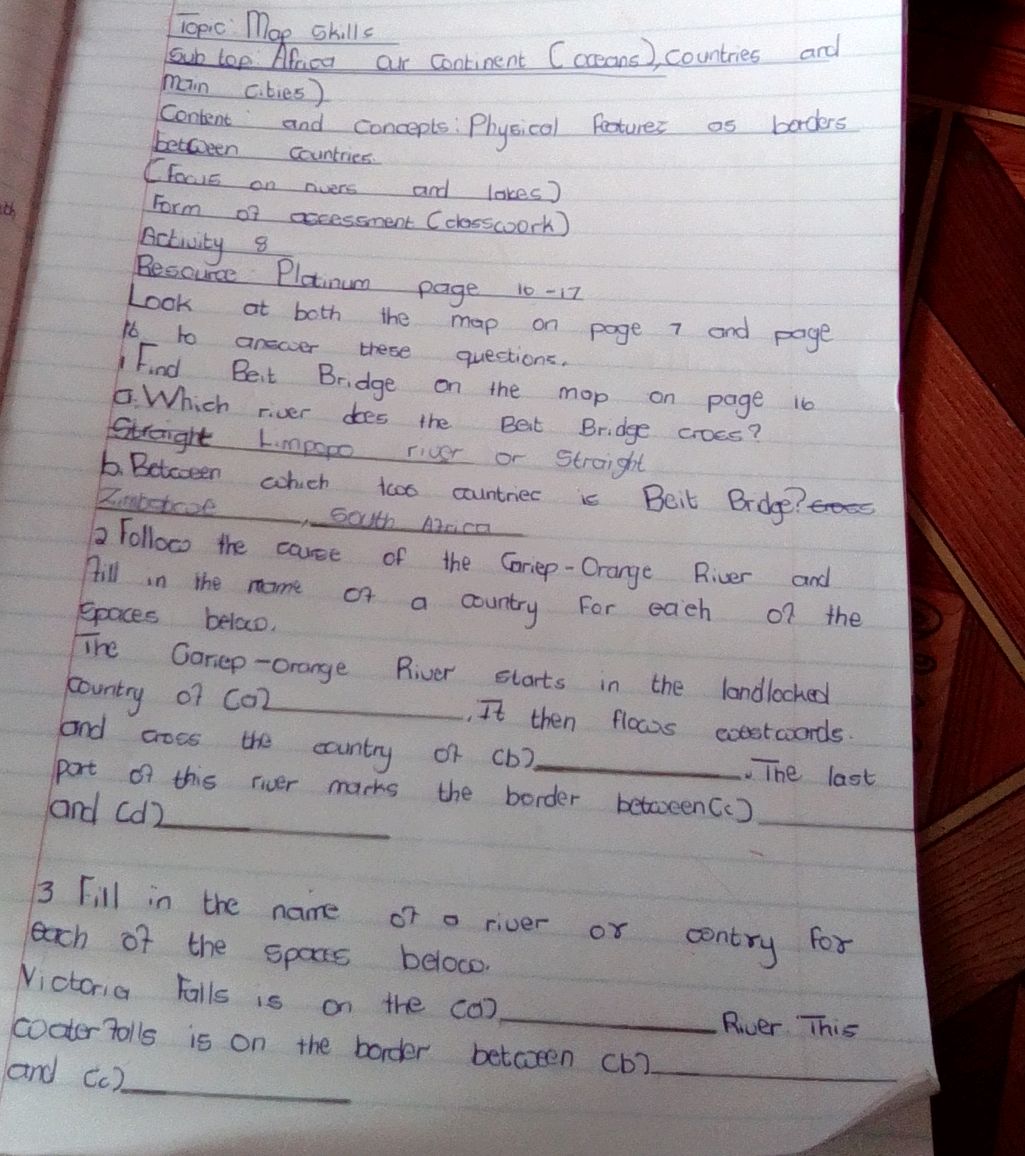 Topic: Map Skills
Sub top: Africa our continent (oceans), countries and
main cities)
Content and concepts: Physical features as borders
between countries.
(Focus on rivers and lakes)
Form of assessment (classwork)
Activity 8
Resource: Platinum page 16-17
Look at both the map on page 7 and page
16 to answer these questions.
1 Find Beit Bridge on the map on page 16
a. Which river does the Beit Bridge cross?
Straight Limpopo river or Straight
b. Between which two countries is Beit Bridge? cross
Zimbabwe, South Africa
2 Follow the course of the Gariep-Orange River and
fill in the name of a country for each of the
spaces below.
The Gariep-Orange River starts in the landlocked
country of (a)__________. It then flows westwards.
and cross the country of (b)__________. The last
part of this river marks the border between (c)__________
and (d)__________
3 Fill in the name of a river or contry for
each of the spaces below.
Victoria Falls is on the (a)__________ River. This
water falls is on the border between (b)__________
and (c)__________